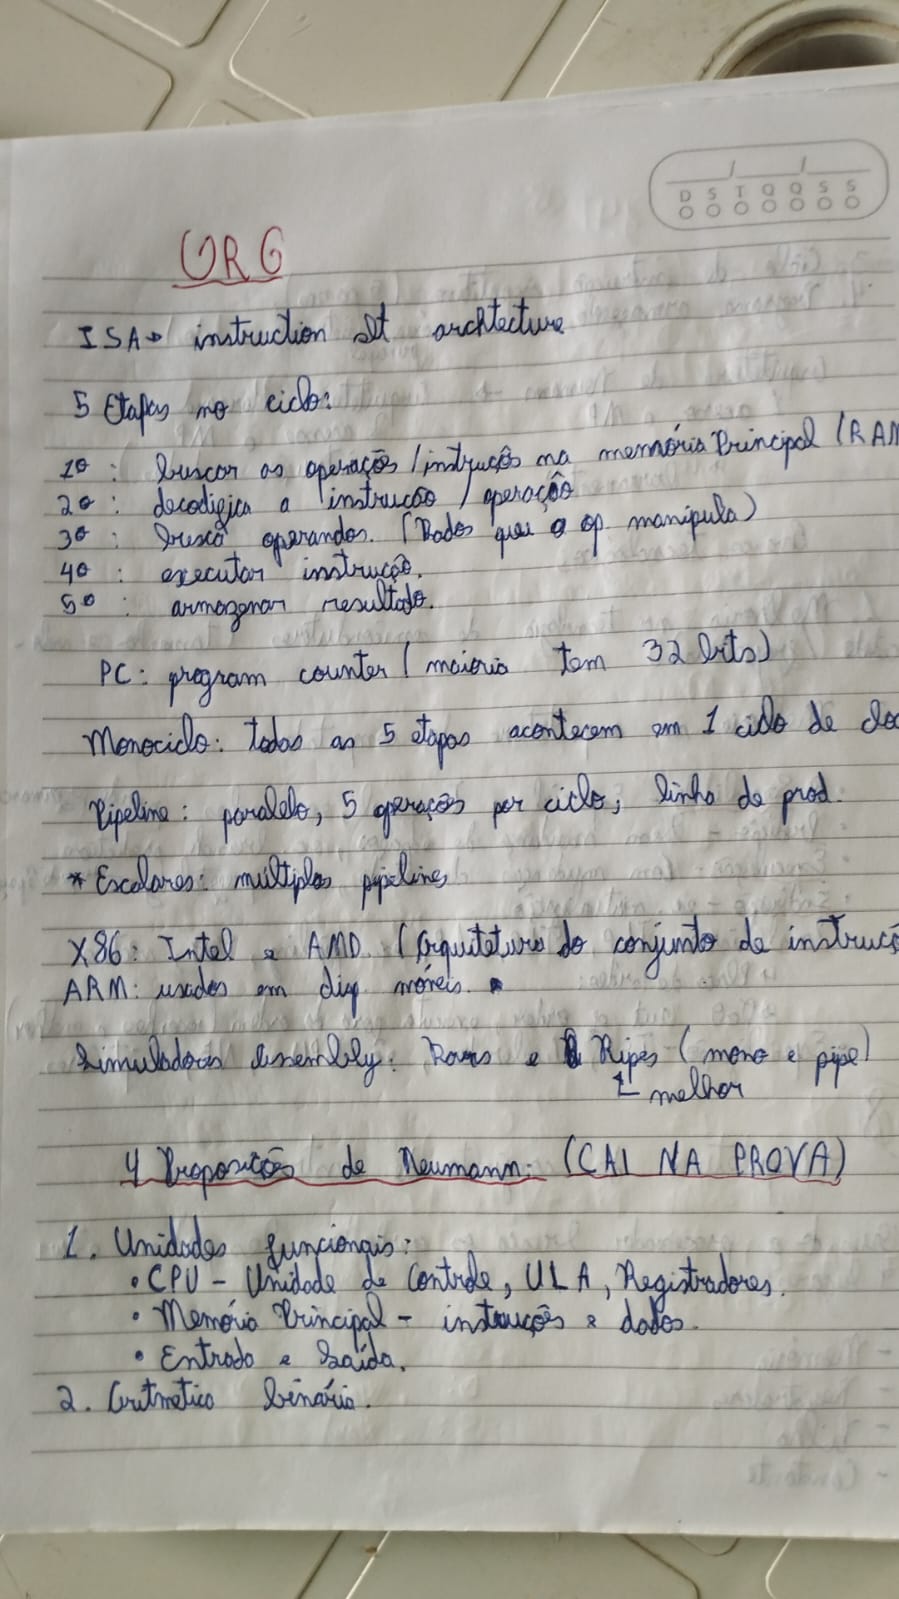 D S T Q Q S S
ORG
ISA→ instruction set archtecture
5 Etapas no ciclo:
1º : buscar as operações/instruções na memória Principal (RAM
2º : decodifica a instrução/operação
3º : busca operandos. (Dados que a op manipula)
4º : executar instrução.
5º : armazenar resultado.
PC: program counter (maioria tem 32 bits)
Monociclo: todas as 5 etapas acontecem em 1 ciclo de cloc
Pipeline: paralelo, 5 operações por ciclo, linha de prod.
* Escalares: multiplos pipelines
X86: Intel e AMD. (Arquitetura do conjunto de instruçõ
ARM: usados em disp móveis.
Simuladores Assembly: Rars e Ripes (mono e pipe)
melhor
4 Proposições de Neumann: (CAI NA PROVA)
1. Unidades funcionais:
• CPU - Unidade de Controle, ULA, Registradores.
• Memória Principal - instruções e dados.
• Entrada e Saída.
2. Aritmetica binária.